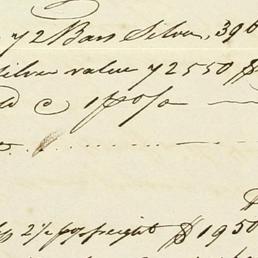 72 Bars Silver, 396
silver value 72550 $
c 1 pr o/o
2½ pr freight $ 1950